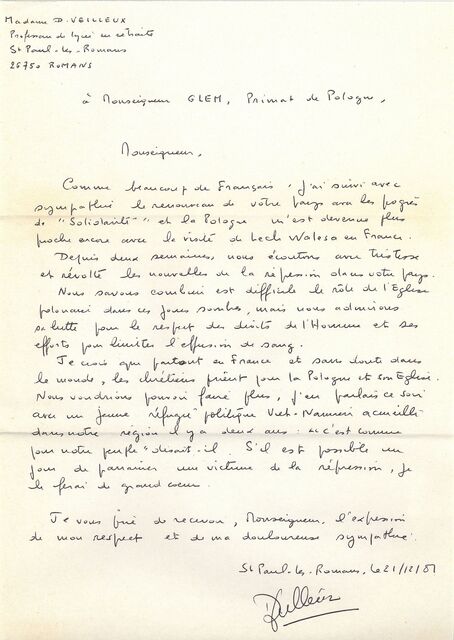 Madame D. VEILLEUX
Professeur de lycée en retraite
St Paul-les-Romans
26750 ROMANS
à Monseigneur GLEM, Primat de Pologne,
Monseigneur,
Comme beaucoup de Français, j'ai suivi avec
sympathie le renouveau de votre pays avec les progrès
de "Solidarité" et la Pologne m'est devenue plus
proche encore avec la visite de Lech Walesa en France.
Depuis deux semaines, nous écoutons avec tristesse
et révolte les nouvelles de la répression dans votre pays.
Nous savons combien est difficile le rôle de l'Eglise
polonaise dans ces jours sombres, mais nous admirons
sa lutte pour le respect des droits de l'Homme et ses
efforts pour limiter l'effusion de sang.
Je crois que partout en France et sans doute dans
le monde, les chrétiens prient pour la Pologne et son Eglise.
Nous voudrions pouvoir faire plus, j'en parlais ce soir
avec un jeune réfugié politique Viet-Namien accueilli
dans notre région il y a deux ans : "c'est comme
pour notre peuple" disait-il. S'il est possible un
jour de parrainer une victime de la répression, je
le ferai de grand coeur.
Je vous prie de recevoir, Monseigneur, l'expression
de mon respect et de ma douloureuse sympathie.
St Paul-les-Romans, le 21/12/81
DVeilleux